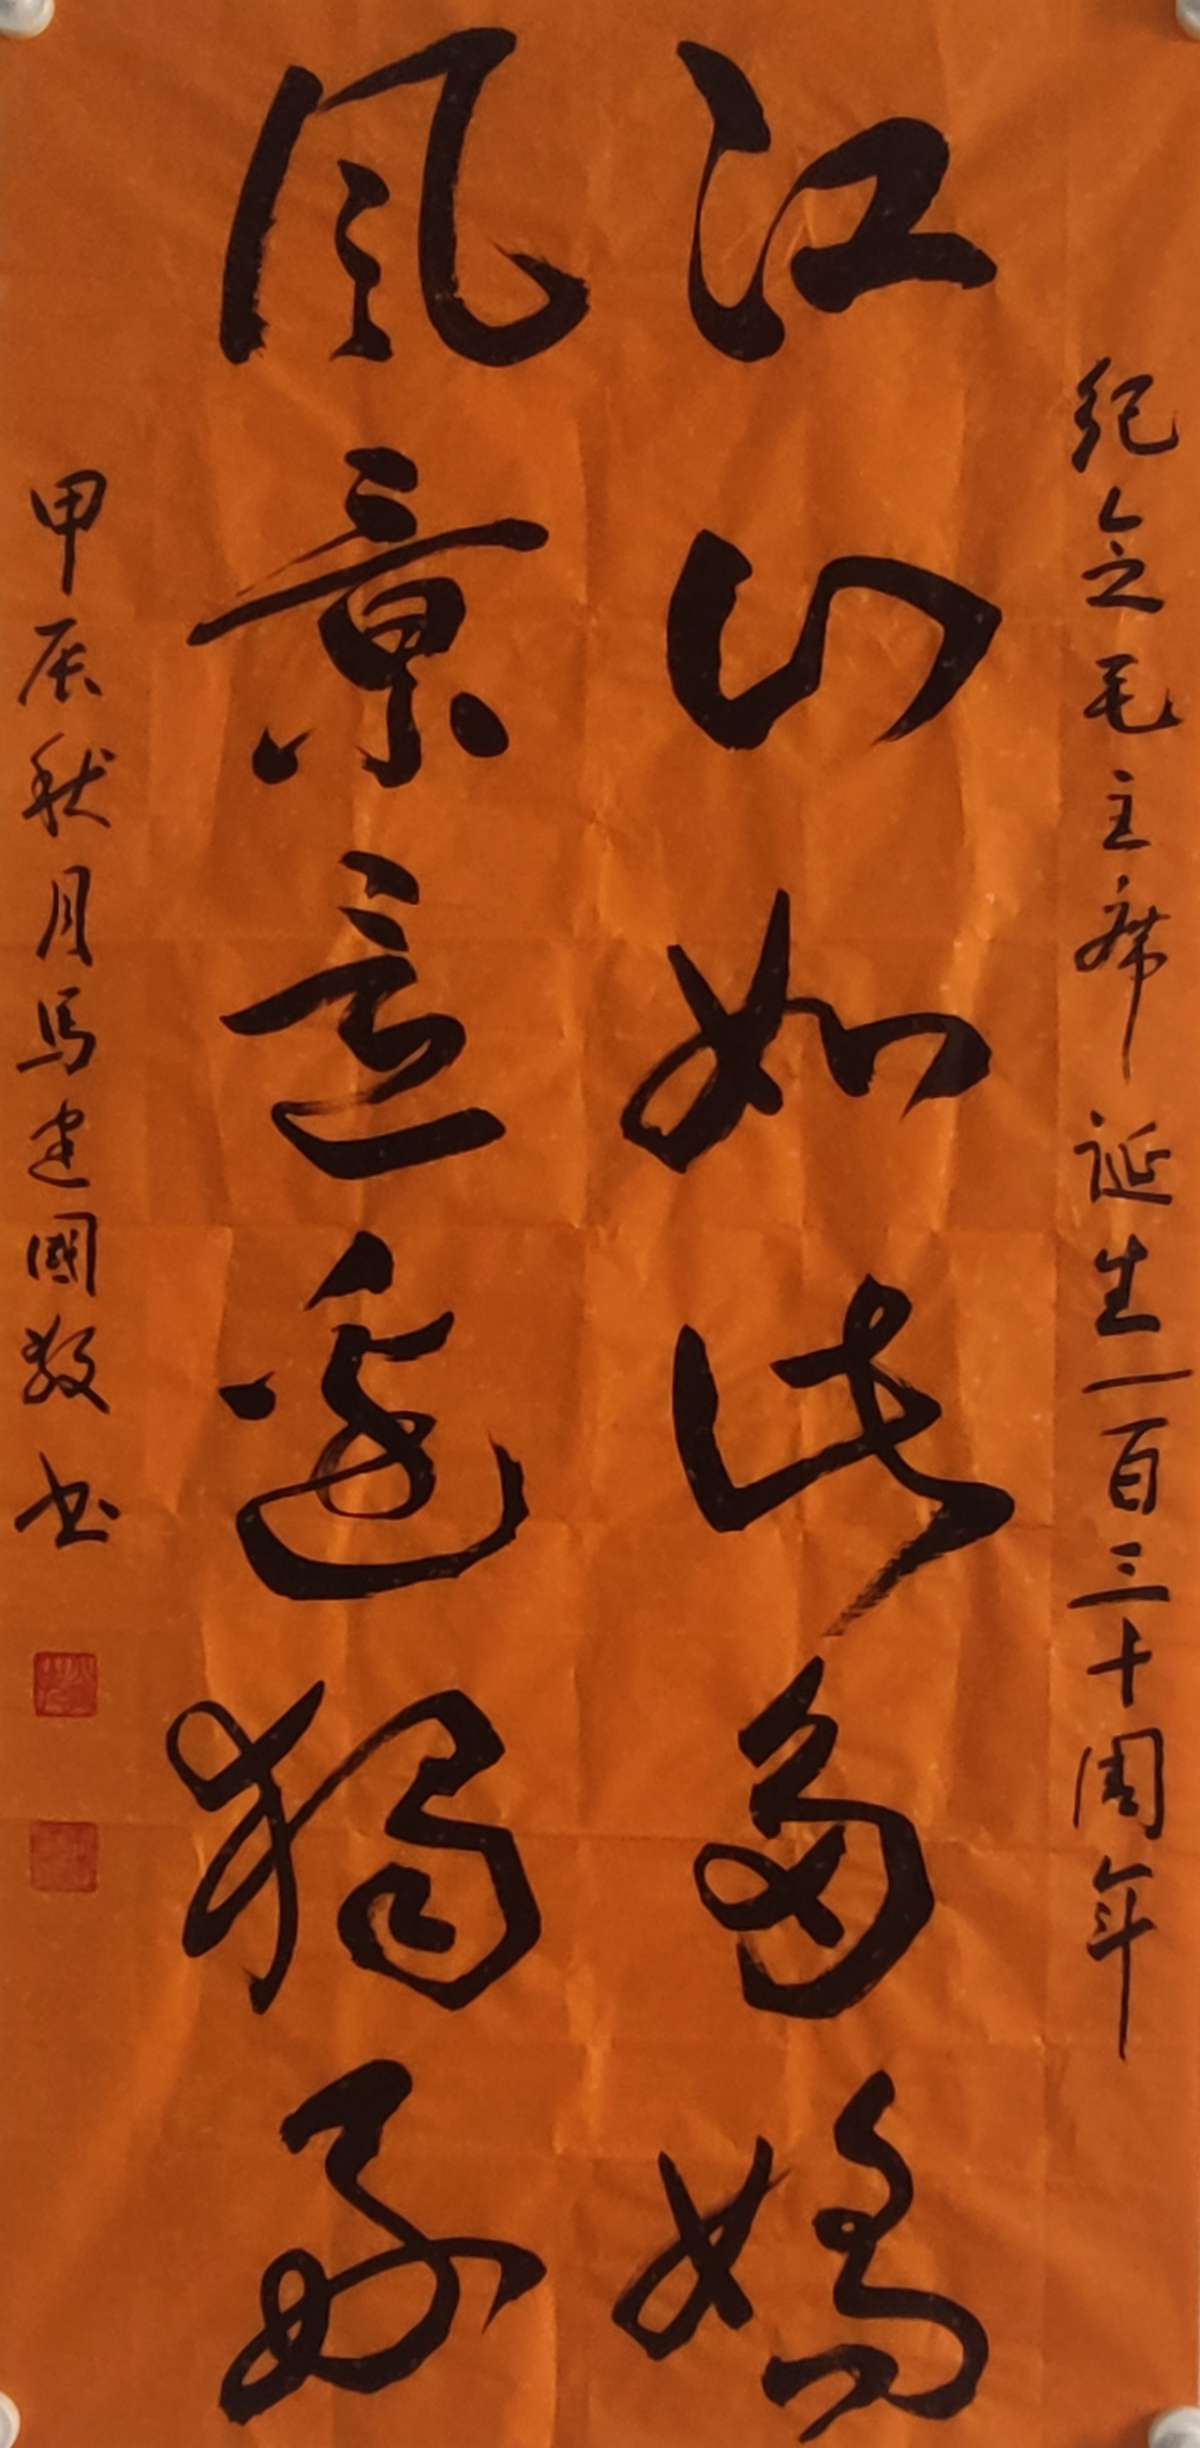 纪念毛主席诞生一百三十周年
江山如此多娇
风景这边独好
甲辰秋月马建國敬书